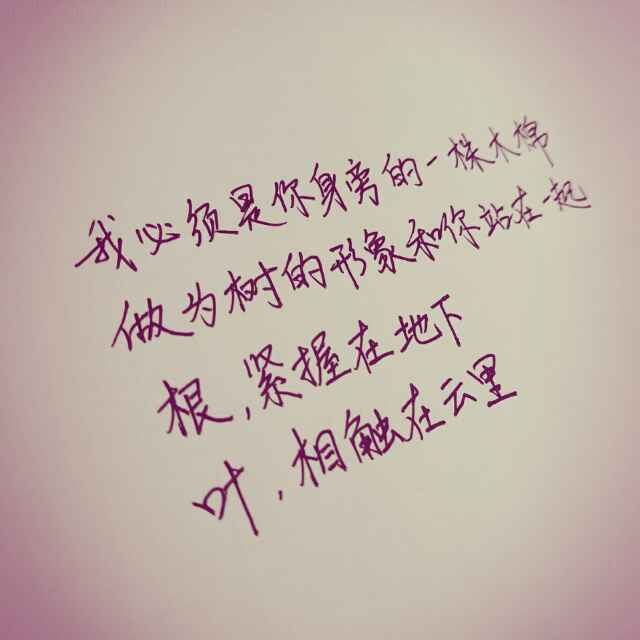 我必须是你身旁的一棵木棉
做为树的形象和你站在一起
根,紧握在地下
叶,相触在云里